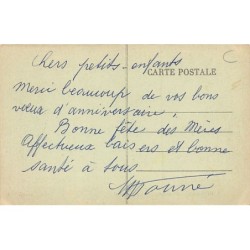 Chers petits-enfants
CARTE POSTALE
Merci beaucoup de vos bons
vœux d'anniversaire,
Bonne fête des Mères
Affectueux baisers et bonne
santé à tous